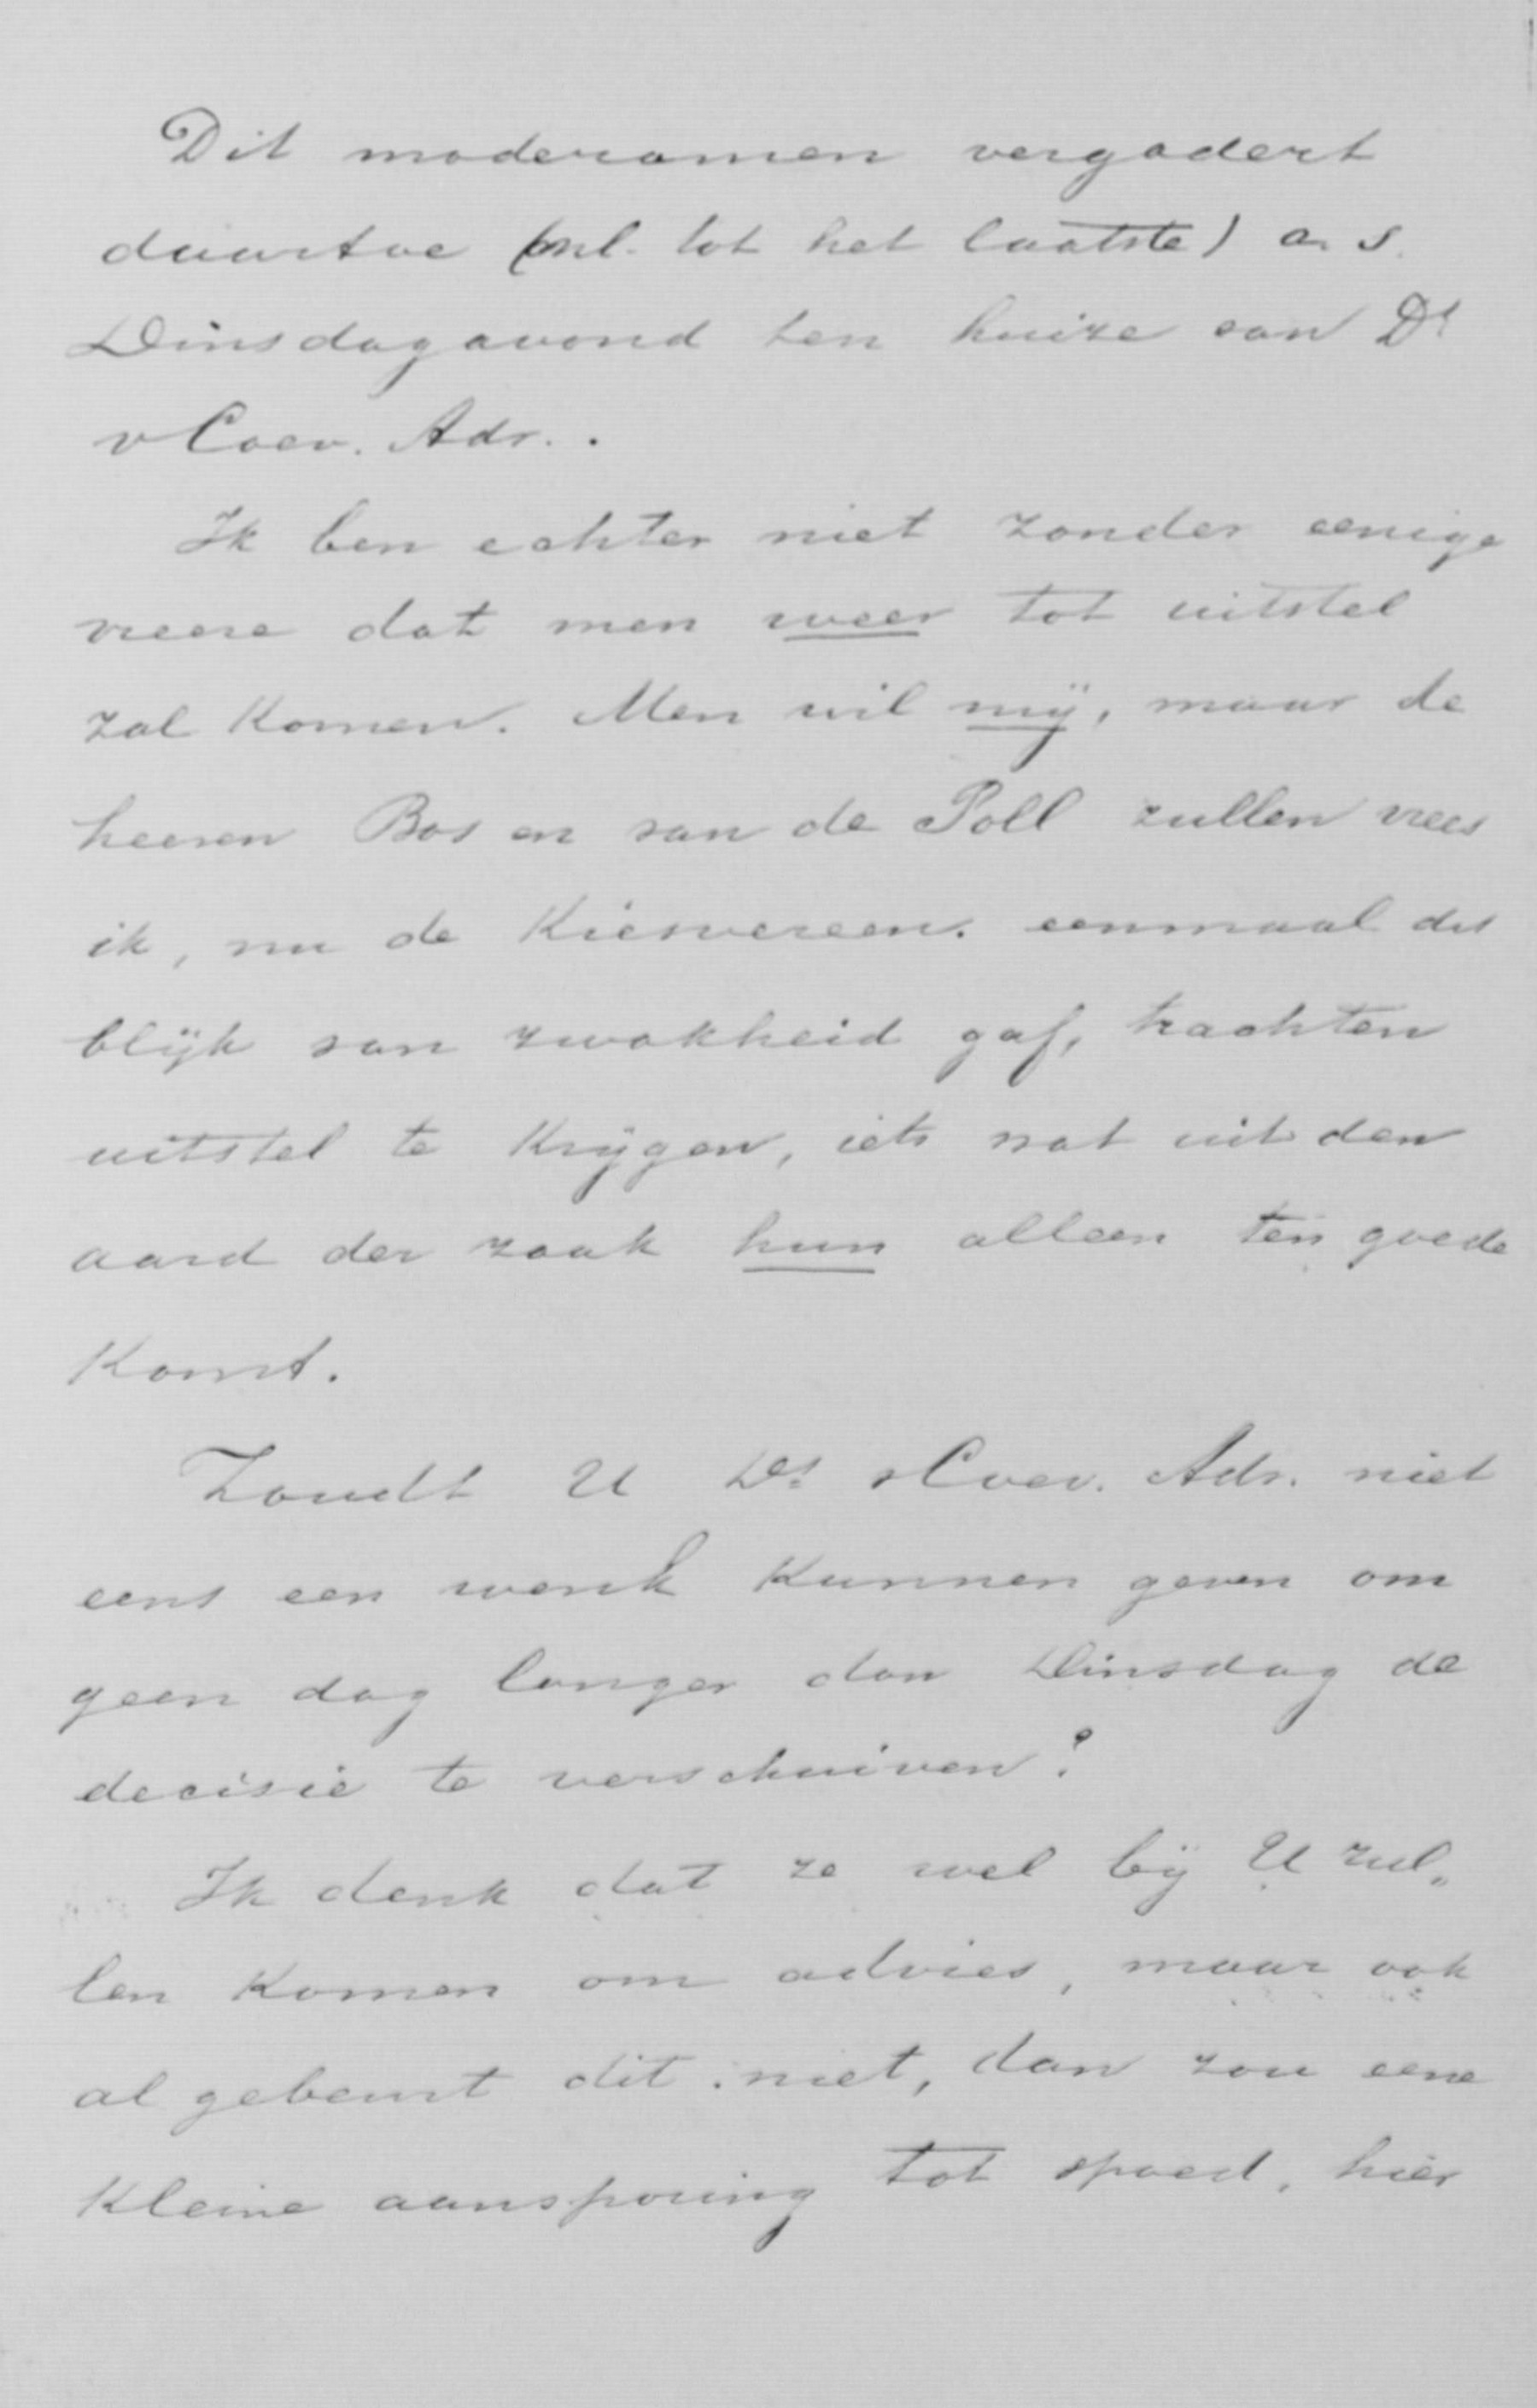 Dit moderamen vergadert
daartoe (nl. tot het laatste) a. s.
Dinsdagavond ten huize van Ds
v Coev. Adr..
Ik ben echter niet zonder eenige
vreeze dat men weer tot uitstel
zal komen. Men wil mij, maar de
heeren Bos en van de Poll zullen vrees
ik, nu de Kiesvereen. eenmaal dit
blijk van zwakheid gaf, trachten
uitstel te krijgen, iets wat uit den
aard der zaak hun alleen ten goede
komt.
Zoudt U Ds. v Coev. Adr. niet
eens een wenk kunnen geven om
geen dag langer dan Dinsdag de
decisie te verschuiven?
Ik denk dat ze wel bij U zul„
len komen om advies, maar ook
al gebeurt dit niet, dan zou eene
kleine aansporing tot spoed, hier